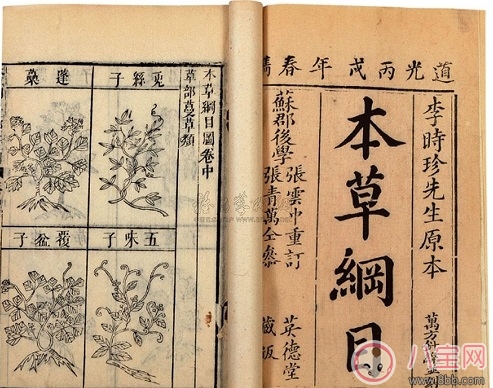 道光丙戌年春鐫
李時珍先生原本
萬方
本草綱目
蘇郡後學張雲中重訂
張青萬仝參
英德堂藏板
本草綱目圖卷中
草部蔓草類
兎絲子
五味子
蓬蘽
覆盆子
八宝网